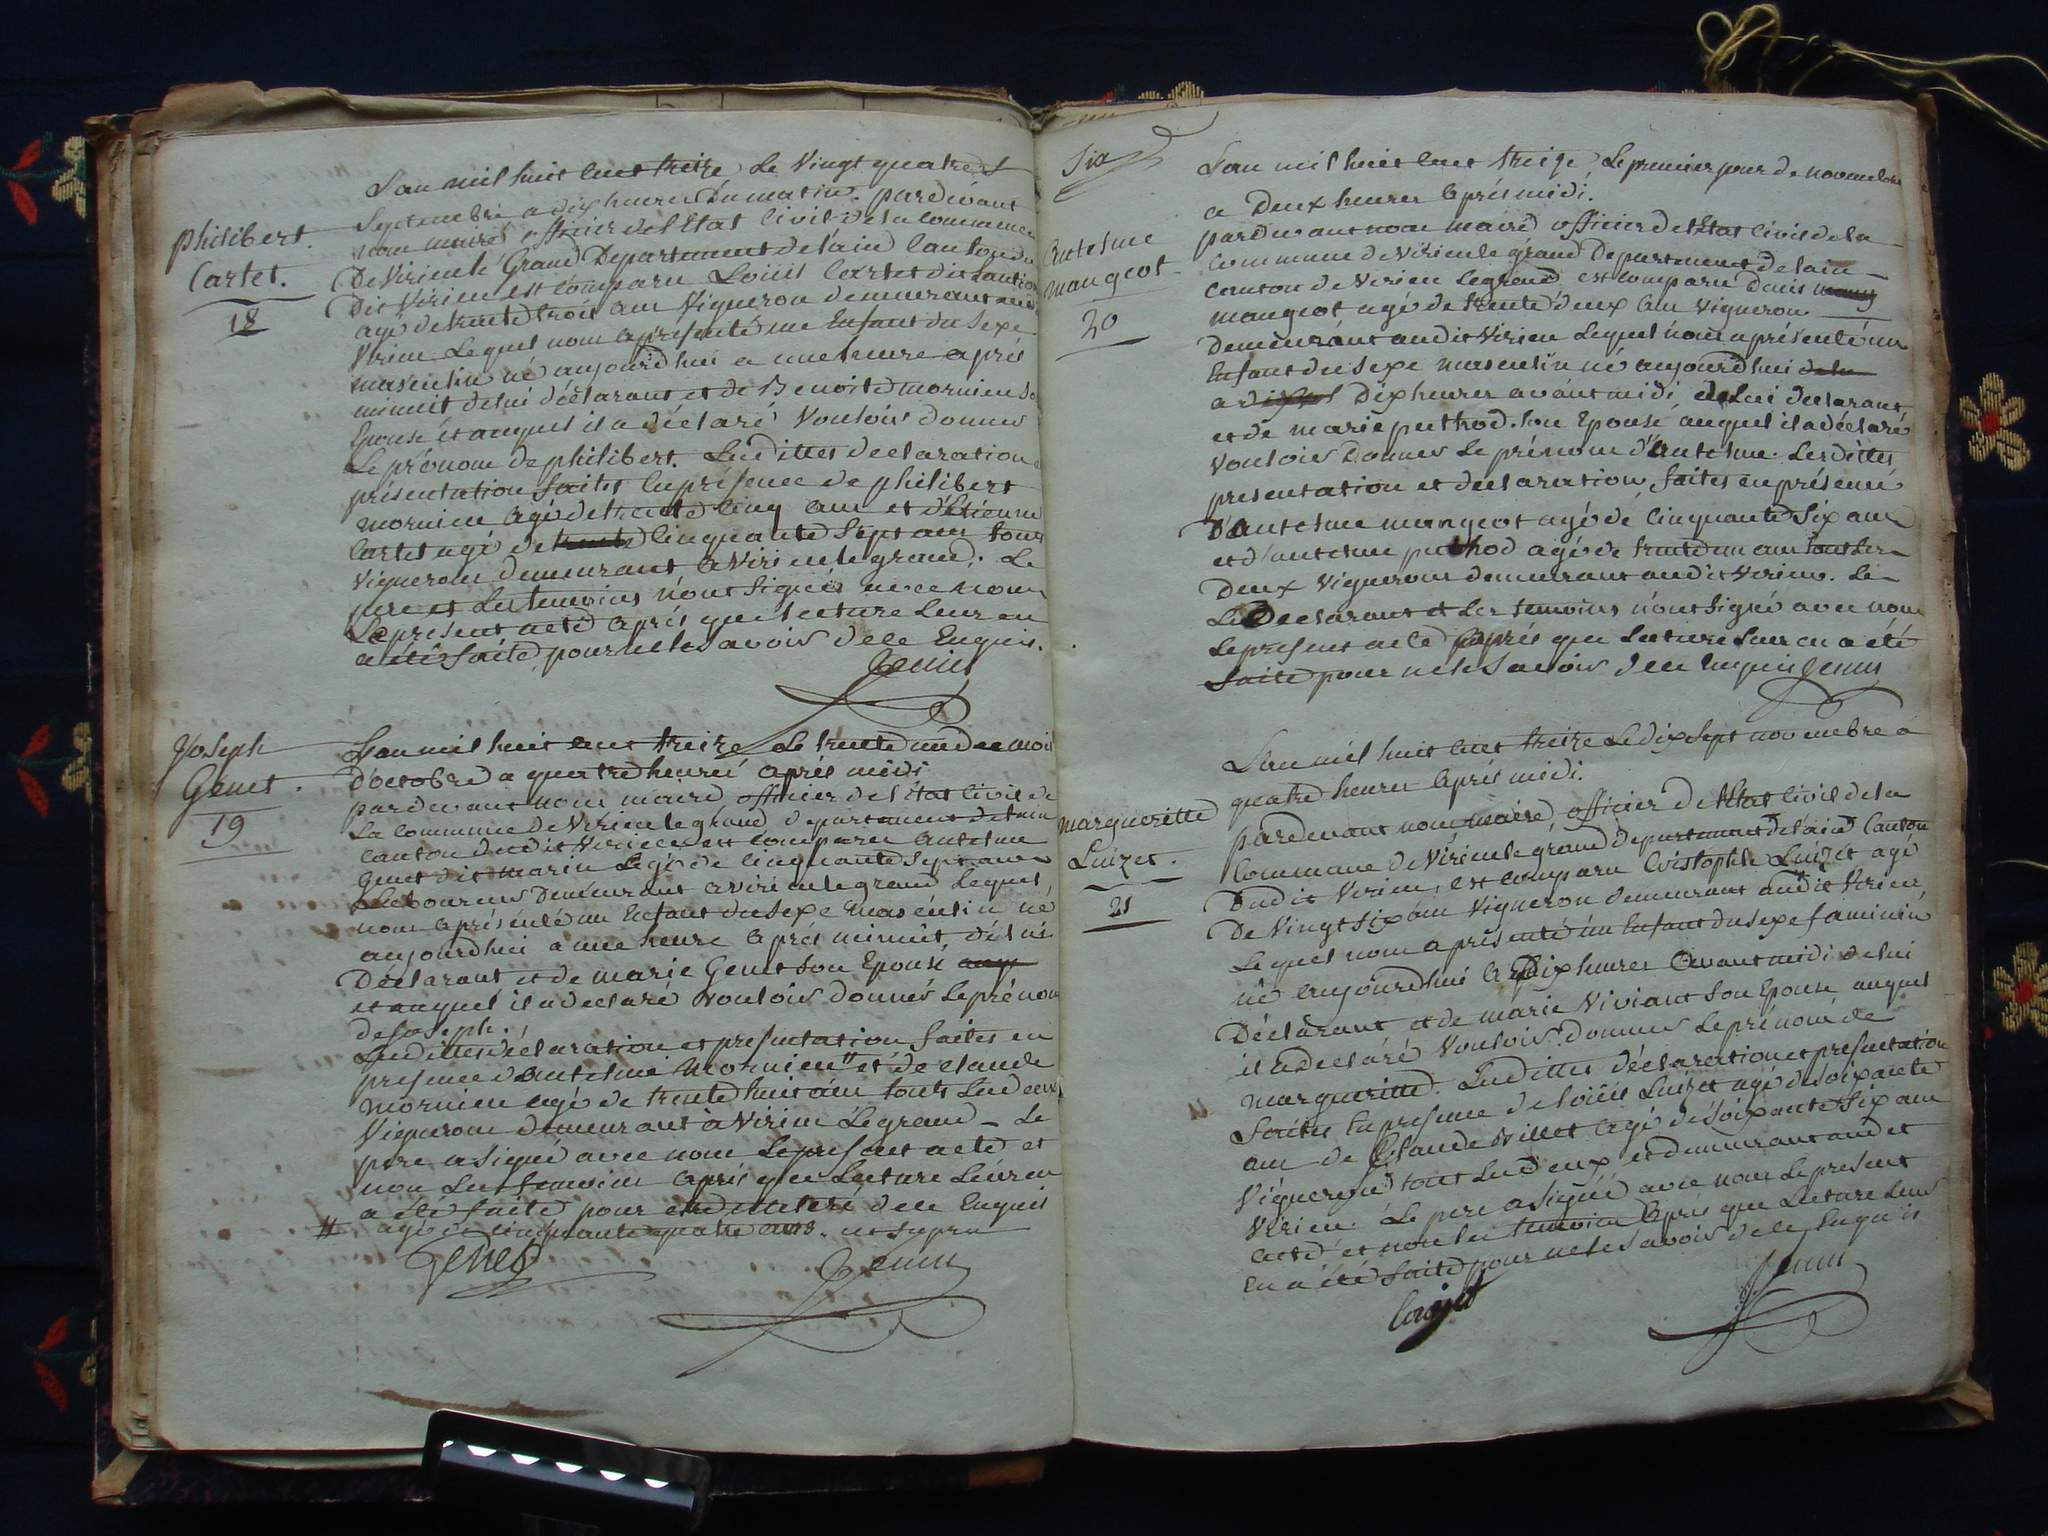 Philibert.
Cartet.
18
L'an mil huit cent treize le Vingt quatre
Septembre a dix heures Du matin. pardevant
nous maire officier de l'Etat Civil de la Commune
De Virieu le Grand Departement de l'ain Canton du
Dit Virieu est comparu Loüis Cartet dit
agé de trente trois ans Vigneron demeurant audit
Virieu Lequel nous a présenté un Enfant du Sexe
masculin né aujourdhui a une heure après
minuit de lui déclarant et de Benoite mornieu Son
Epouse et auquel il a déclaré Vouloir donner
Le prénom de philibert. Lesdittes déclaration
présentation faites En présence de philibert
mornieu agé de trente Cinq ans et d'Etienne
Cartet agé de Cinquante Sept ans tous
Vignerons demeurant a Virieu le grand. Le
pere et Les temoins n'ont Signés avec nous
Le présent acte après que lecture Leur en
a été faite, pour ne le Savoir de ce Enquis.
Genin
Joseph
Genet.
19
L'an mil huit cent treize Le trente un du mois
D'octobre a quatre heures après midi
pardevant nous maire officier de l'état civil de
La Commune de Virieu le grand departement de l'ain
canton dudit Virieu est comparu antelme
Genet dit marin agé de Cinquante Sept ans
Laboureur Demeurant a Virieu le grand Lequel
nous a présenté un Enfant du Sexe masculin né
aujourdhui a une heure après minuit, de lui
Déclarant et de marie Genet Son Epouse
et auquel il a declaré vouloir donner Le prénom
de Joseph.
Lesdittes déclaration et présentation faites en
présence d'antelme mornieu # et de claude
mornieu agé de trente huit ans tous Les deux
Vignerons demeurant à Virieu Le grand - Le
pere a Signé avec nous Le présent acte et
non Les temoins après que Lecture Leur en
a été faite pour de ce Enquis
# agé de cinquante quatre ans. ut supra
Genet
Genin
Six
Antelme
mangeot
20
L'an mil huit cent treize, Le premier jour de novembre
a Deux heures après midi.
pardevant nous maire officier de l'Etat Civil de la
Commune de Virieu le grand Departement de l'ain
Canton de Virieu Legrand est comparu Denis
mangeot agé de trente deux ans Vigneron
Demeurant audit Virieu Lequel nous a présenté un
Enfant du Sexe masculin né aujourdhui
a Dix heures avant midi, de Lui déclarant
et de marie puthod. Son Epouse auquel il a déclaré
Vouloir Donner Le prénom d'Antelme. Lesdittes
presentation et declaration faites en présence
D'antelme mangeot agé de Cinquante Six ans
et d'antelme puthod agé de trente un ans tous Les
Deux Vignerons demeurant audit Virieu. Le
Le Declarant et Les temoins n'ont Signé avec nous
Le present acte après que Lecture Leur en a été
faite pour ne le Savoir de ce Enquis Genin
margueritte
Luizet.
21
L'an mil huit cent treize Le Dix Sept novembre à
quatre heures après midi.
pardevant nous maire, officier de l'Etat Civil de la
Commune de Virieu le grand departement de l'ain Canton
Dudit Virieu, est comparu Luizet agé
De Vingt Six ans Vigneron demeurant audit Virieu,
Lequel nous a présenté un Enfant du Sexe faminin
né aujourdhui a Dix heures avant midi de lui
Déclarant et de marie Viviant Son Epouse auquel
il a declaré Vouloir Donner Le prénom de
margueritte. Lesdittes déclaration et présentation
faites En présence de Loüis Luizet agé de Soixante
ans de Claude Billet agé de Soixante Six ans
Vignerons tous Les deux et demeurant audit
Virieu. Le pere a Signé avec nous Le present
acte et non les temoins après que Lecture Leur
En a été faite pour ne le Savoir de ce Enquis
Genin